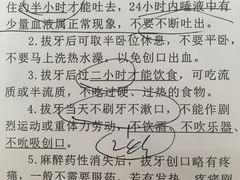 住约半小时才能吐去，24小时内唾液中有
少量血液属正常现象，不要不断吐出。
2.拔牙后可取半卧位休息，不要平卧，
不要马上洗热水澡，以免创口出血。
3.拔牙后过二小时才能饮食，可吃流
质或半流质，不吃过硬、过热的食物。
4.拔牙当天不刷牙不漱口，不能作剧
烈运动或重体力劳动，不饮酒、不吹乐器、
不吮吸创口。
5.麻醉药性消失后，拔牙创口略有疼
痛，一般不需要服药，若有发热、疼痛剧